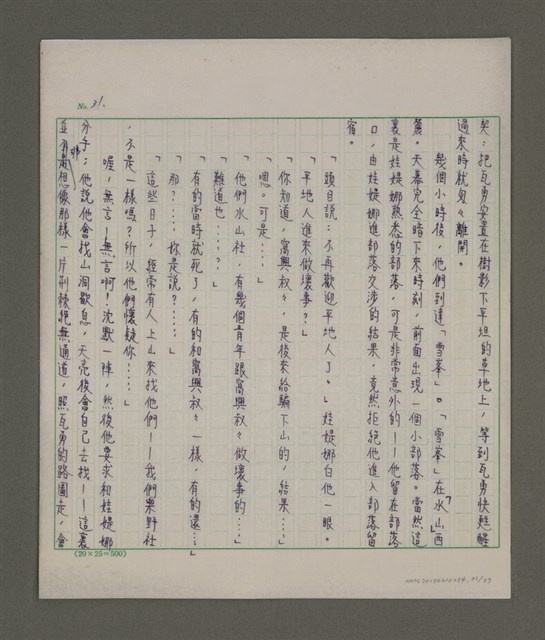 No. 31.
契：把瓦勇安置在樹影下平坦的草地上，等到瓦勇快甦醒
過來時就匆匆離開。
幾個小時後，他們到達「雪峯」。「雪峯」在「水山」西
麓。天幕完全暗下來時刻，前面出現一個小部落。當然這
裏是娃媞娜熟悉的部落，可是非常意外的——他留在部落
口，由娃媞娜進部落交涉的結果，竟然拒絕他進入部落留
宿。
「頭目說：不再歡迎平地人了。」娃媞娜白他一眼。
「平地人進來做壞事？」
「你知道，窩興叔叔，是後來給騙下山的，結果…」
「嗯。可是……」
「他們水山社，有幾個青年跟窩興叔叔做壞事的…」
「難道也……？」
「有的當時就死了，有的和窩興叔叔一樣，有的還…」
「那？……你是說？……」
「這些日子，經常有人上山來找他們——我們樂野社
，不是一樣嗎？所以他們懷疑你……」
喔，無言！無言啊！沈默一陣，然後他要求和娃媞娜
分手；他說他會找山洞歇息，天亮後會自己去找——這裏
並想像那樣一片荊棘絕無通道，照瓦勇的路圖走，會
(20×25=500)